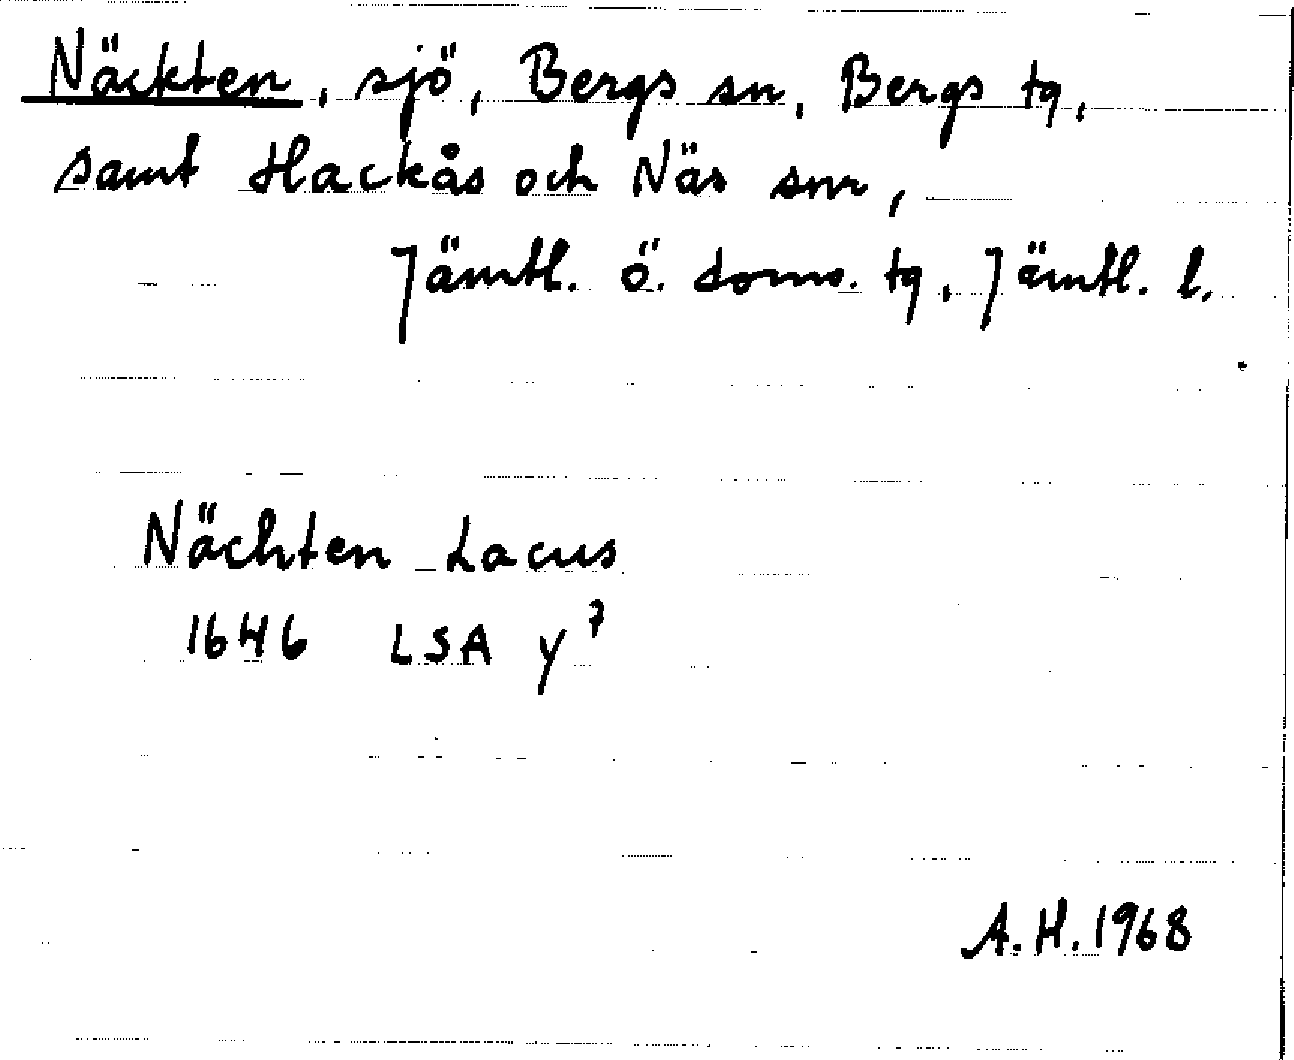 Näckten, sjö, Bergs sn, Bergs tg,
samt Hackås och Näs snr,
Jämtl. ö. doms. tg, Jämtl. l.
Nächten Lacus
1646 LSA y⁷
A.H. 1968